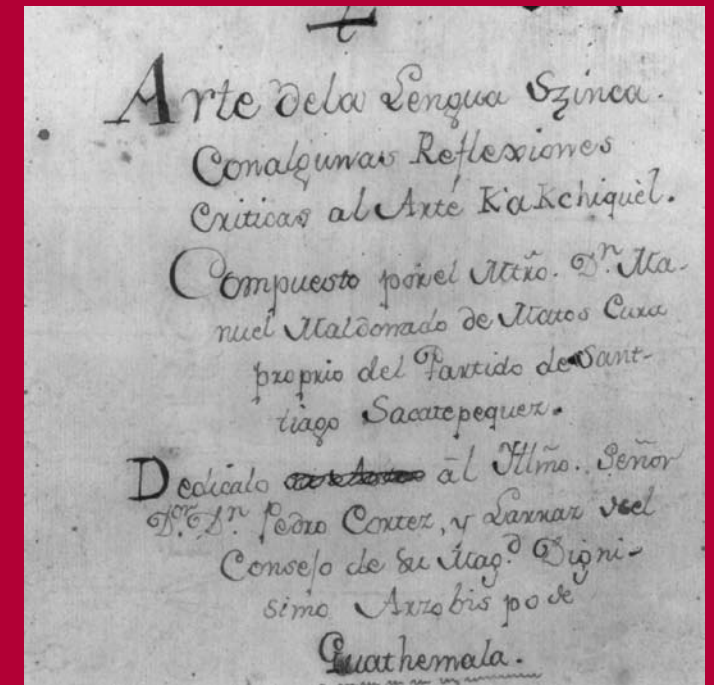 Arte dela Lengua Szinca.
Conalgunas Reflexiones
Criticas al Arté K'akchiquèl.
Compuesto porel Mtr̃o. Dn. Ma-
nuel Maldonado de Matos Cura
proprio del Partido de Sant-
tiago Sacatepequez.
Dedicalo āl Yllm̃o. Señor
Dor. Dn. Pedro Cortez, y Larraz del
Consejo de Su Magd. Digni-
simo Arzobispo de
Guathemala.